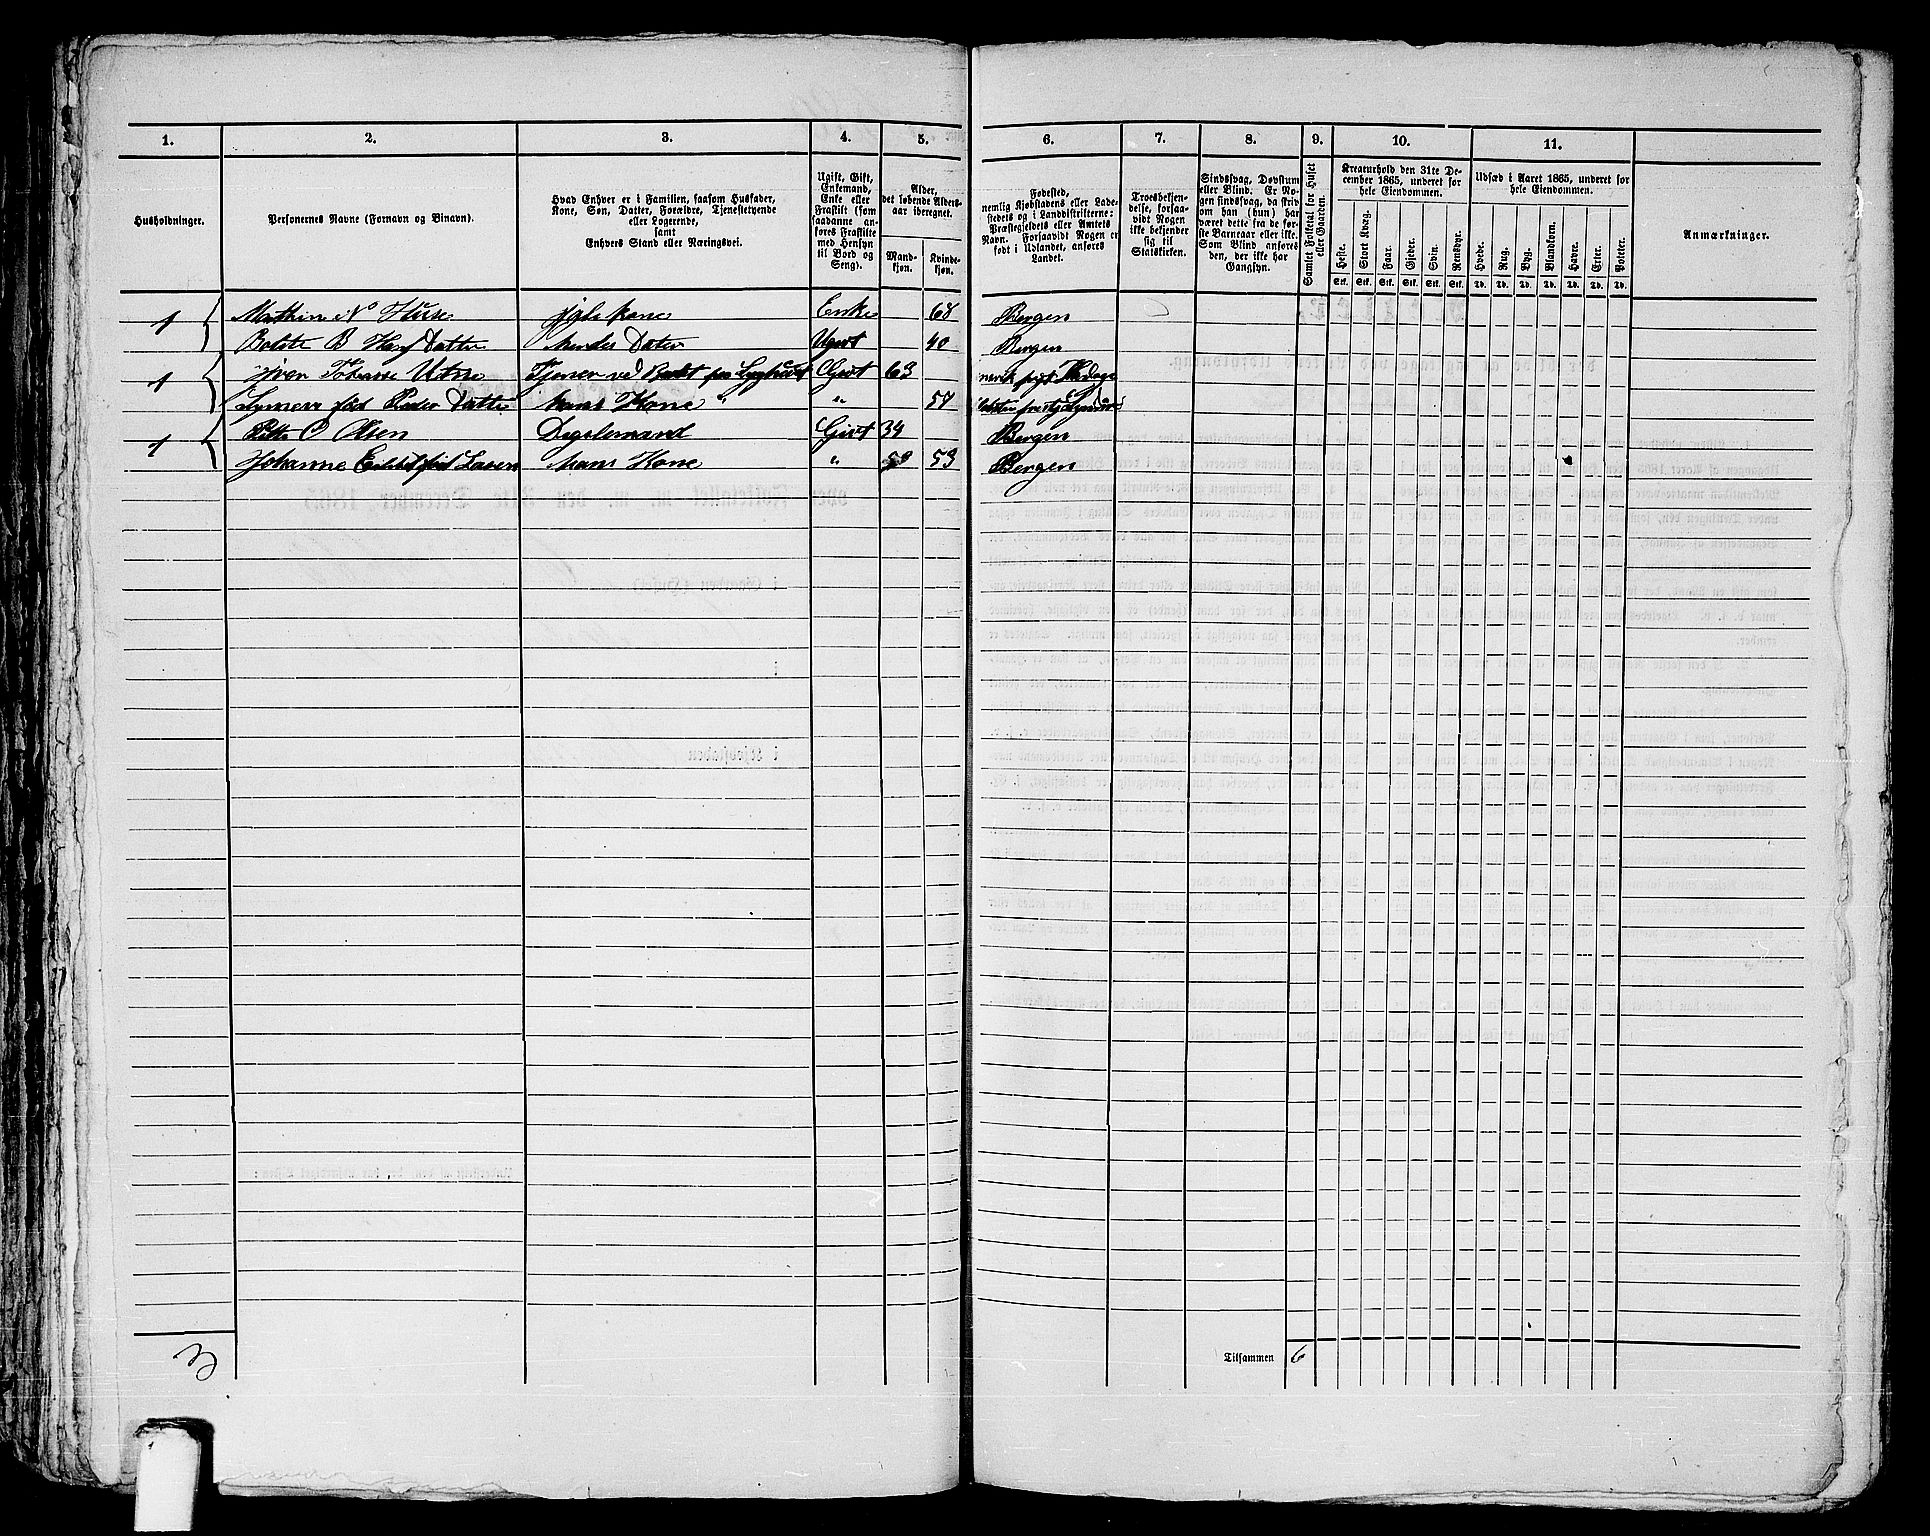 1. 2. 3. 4. 5. 6. 7. 8. 9. 10. 11.
Husholdninger.
Personernes Navne (Fornavn og Binavn).
Hvad Enhver er i Familien, saasom Husfader,
Kone, Søn, Datter, Forældre, Tjenestetyende
eller Logerende,
samt
Enhvers Stand eller Næringsvei.
Ugift, Gift,
Enkemand,
Enke eller
Fraskilt (som
saadanne an-
føres Fraskilte
med Hensyn
til Bord og
Seng).
Alder,
det løbende Alders-
aar iberegnet.
Mand-
kjøn.
Kvinde-
kjøn.
Fødested,
nemlig Kjøbstadens eller Lade-
stedets og i Landdistrikterne:
Præstegjeldets eller Amtets
Navn. Forsaavidt Nogen er
født i Udlandet, anføres
Landet.
Troesbekjen-
delse, forsaa-
vidt Nogen
ikke bekjender
sig til
Statskirken.
Sindssvag, Døvstum
eller Blind. Er No-
gen sindssvag, da skriv
om han (hun) har
været dette fra de før-
ste Barneaar eller ikke.
Som Blind anføres
den, der ikke har
Gangsyn.
Samlet Folketal for Huset
eller Gaarden.
Kreaturhold den 31te De-
cember 1865, underet for
hele Eiendommen.
Heste. Stort Kvæg. Faar. Gjeder. Svin. Rensdyr.
Stk. Stk. Stk. Stk. Stk. Stk.
Udsæd i Aaret 1865, underet for
hele Eiendommen.
Hvede. Rug. Byg. Blandkorn. Havre. Erter. Poteter.
Td. Td. Td. Td. Td. Td. Td.
Anmærkninger.
1 N Huse Enke 68 Bergen
B Datter Ugivt 40 Bergen
1 Iver Johanse Utne Tjener ved paa Givt 63
født Peder Datter Hans Kone " " 57
1 C Olsen Givt 34 Bergen
Johanne født Hans Kone " 53 Bergen
3
Tilsammen 6